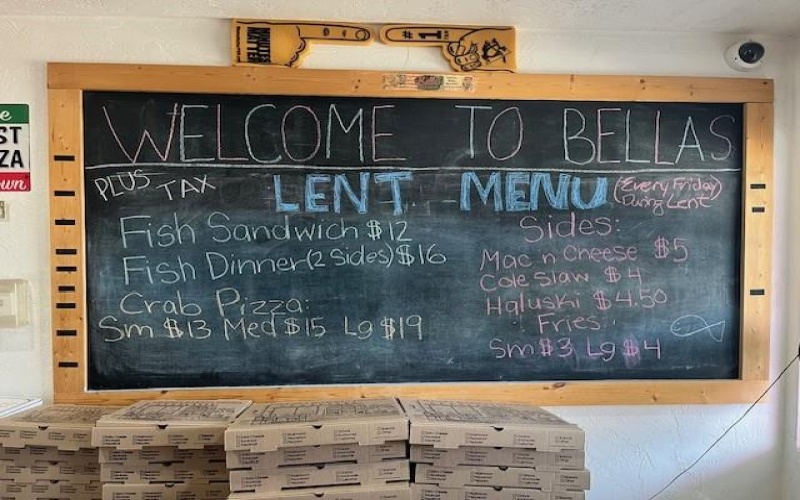 #1
WELCOME TO BELLAS
PLUS TAX
LENT MENU (Every Friday During Lent)
Fish Sandwich $12
Fish Dinner (2 Sides) $16
Crab Pizza:
Sm $13 Med $15 Lg $19
Sides:
Mac n Cheese $5
Cole Slaw $4
Haluski $4.50
Fries
Sm $3 Lg $4